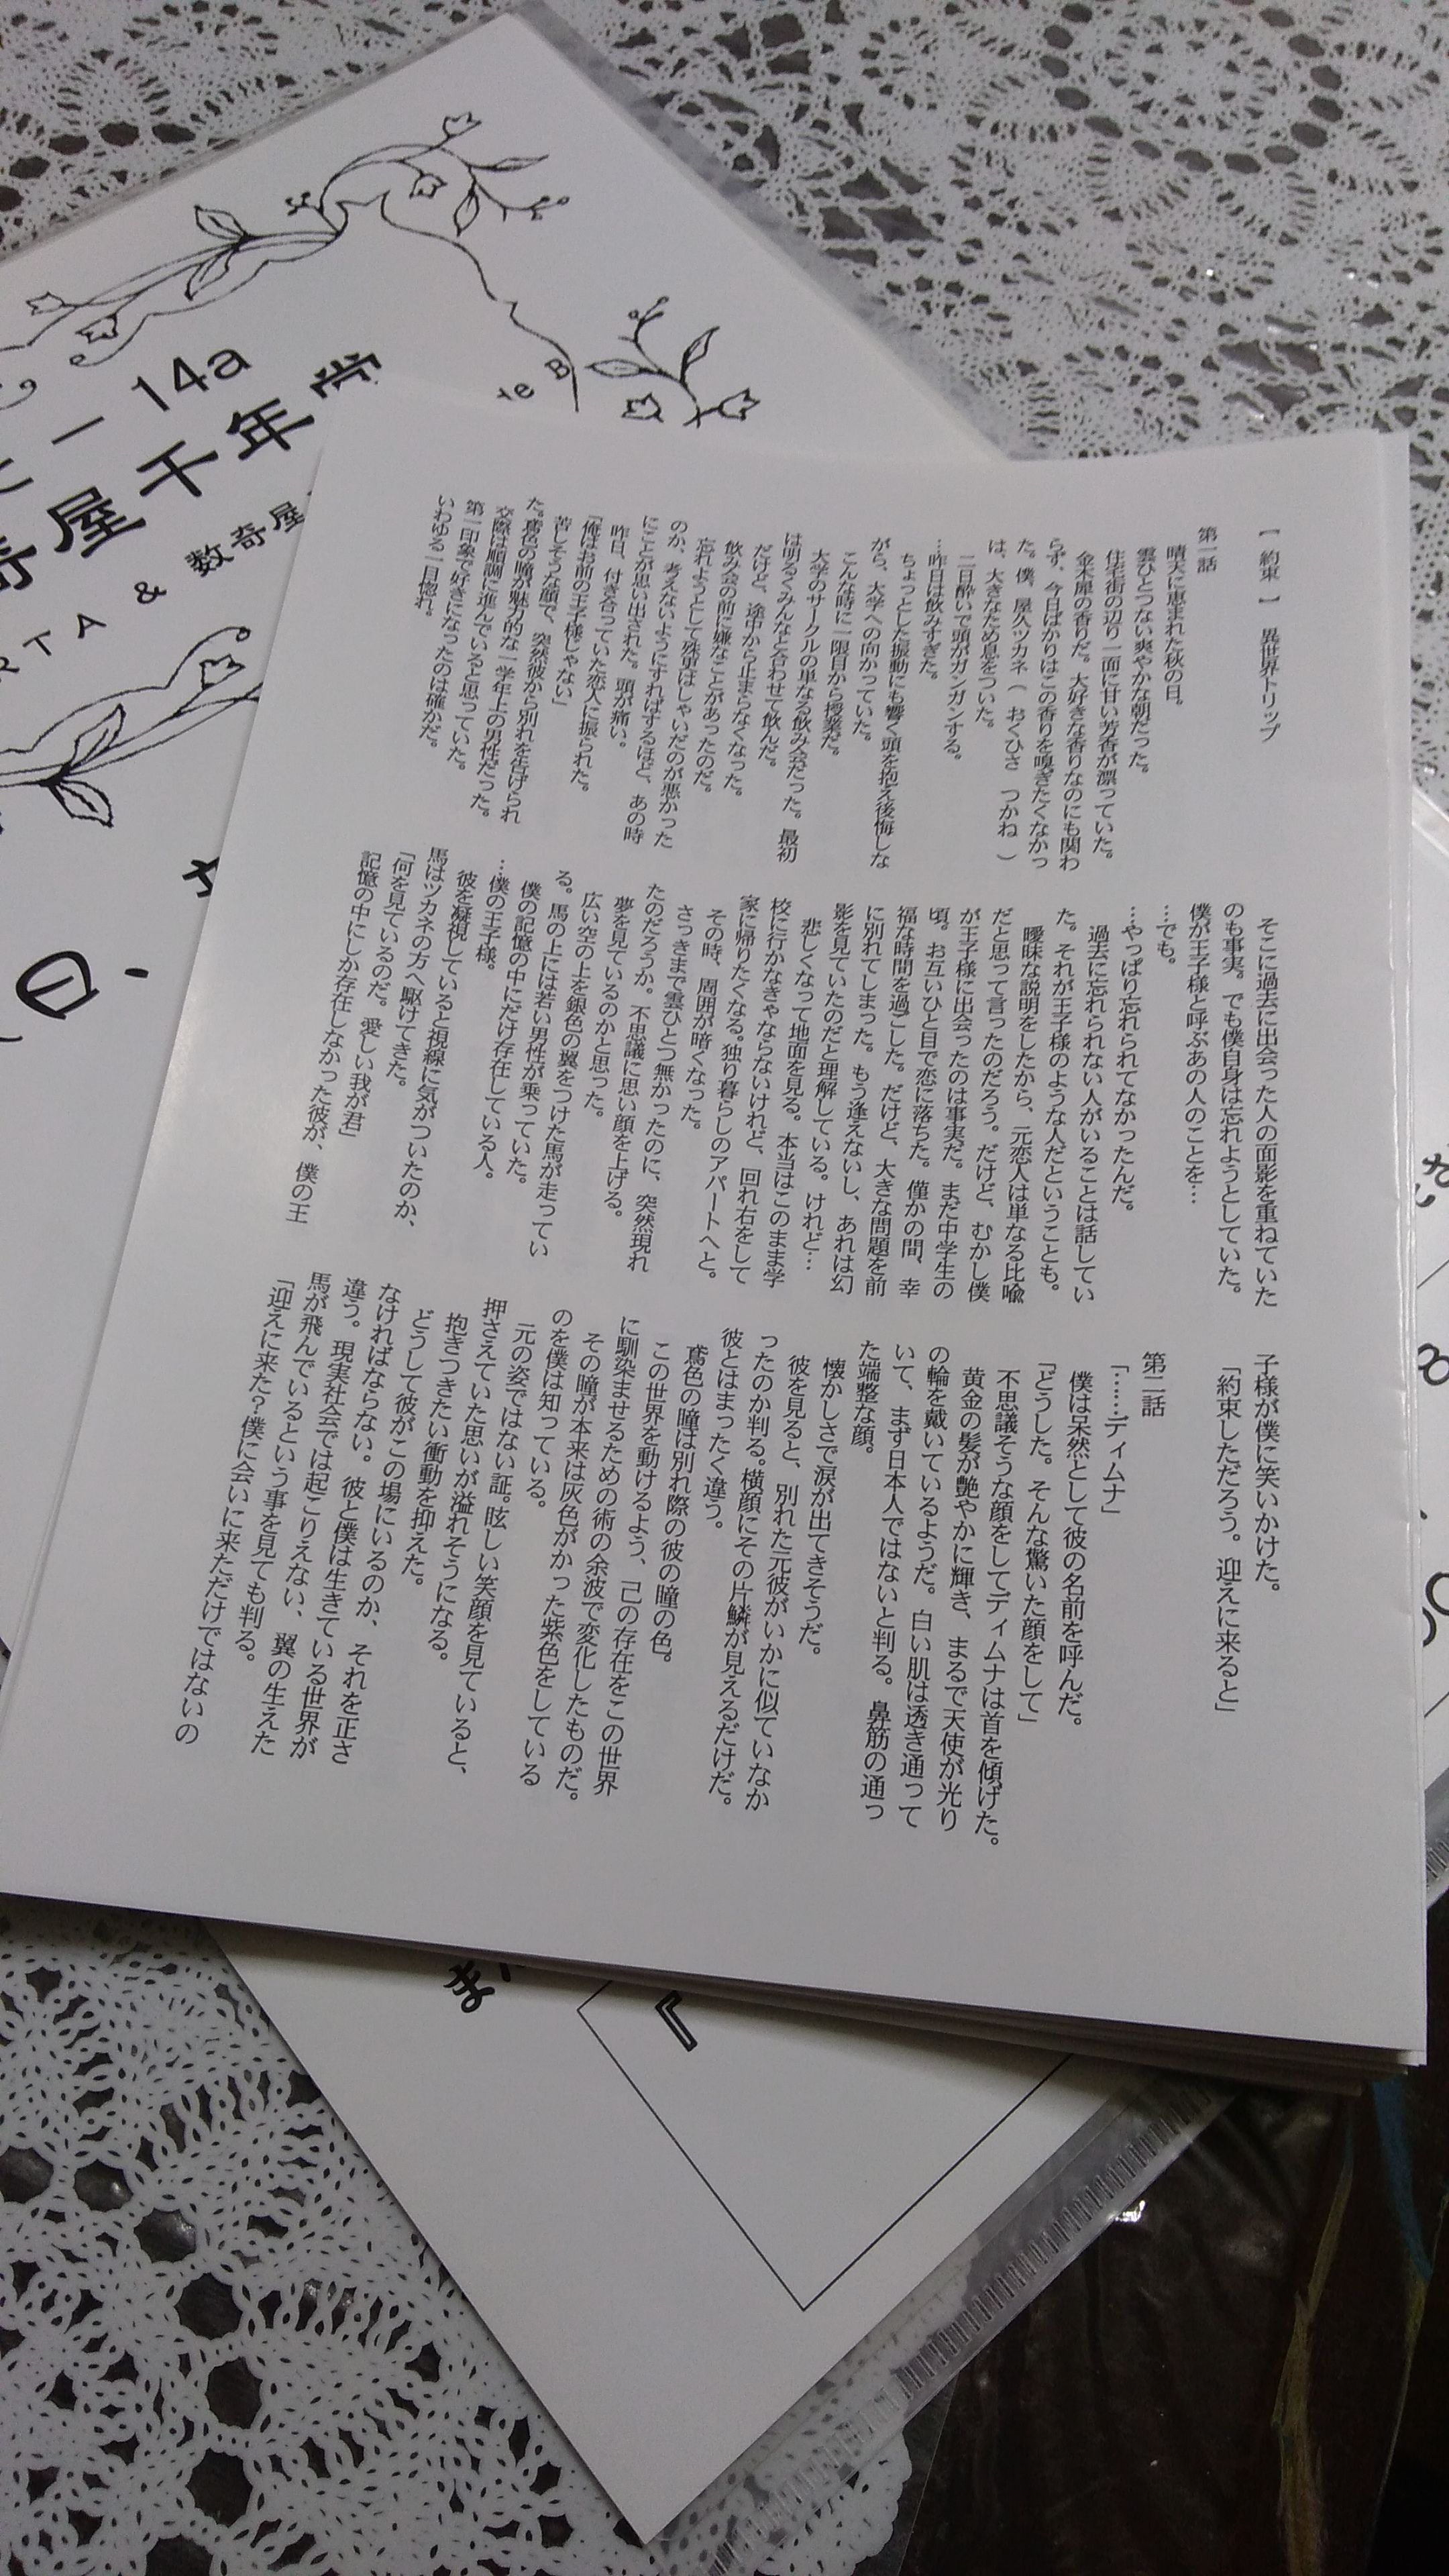 【 約束 】 異世界トリップ
第一話
晴天に恵まれた秋の日。
雲ひとつない爽やかな朝だった。
住宅街の辺り一面に甘い芳香が漂っていた。
金木犀の香りだ。大好きな香りなのにも関わ
らず、今日ばかりはこの香りを嗅ぎたくなかっ
た。僕、屋久ツカネ（ おくひさ つかね ）
は、大きなため息をついた。
二日酔いで頭がガンガンする。
…昨日は飲みすぎた。
ちょっとした振動にも響く頭を抱え後悔しな
がら、大学への向かっていた。
こんな時に一限目から授業だ。
大学のサークルの単なる飲み会だった。最初
は明るくみんなと合わせて飲んだ。
だけど、途中から止まらなくなった。
飲み会の前に嫌なことがあったのだ。
忘れようとして殊更はしゃいだのが悪かった
のか、考えないようにすればするほど、あの時
にことが思い出された。頭が痛い。
昨日、付き合っていた恋人に振られた。
「俺はお前の王子様じゃない」
苦しそうな顔で、突然彼から別れを告げられ
た。鳶色の瞳が魅力的な一学年上の男性だった。
交際は順調に進んでいると思っていた。
第一印象で好きになったのは確かだ。
いわゆる一目惚れ。
そこに過去に出会った人の面影を重ねていた
のも事実。でも僕自身は忘れようとしていた。
僕が王子様と呼ぶあの人のことを…
…でも。
…やっぱり忘れられてなかったんだ。
過去に忘れられない人がいることは話してい
た。それが王子様のような人だということも。
曖昧な説明をしたから、元恋人は単なる比喩
だと思って言ったのだろう。だけど、むかし僕
が王子様に出会ったのは事実だ。まだ中学生の
頃。お互いひと目で恋に落ちた。僅かの間、幸
福な時間を過ごした。だけど、大きな問題を前
に別れてしまった。もう逢えないし、あれは幻
影を見ていたのだと理解している。けれど…
悲しくなって地面を見る。本当はこのまま学
校に行かなきゃならないけれど、回れ右をして
家に帰りたくなる。独り暮らしのアパートへと。
その時、周囲が暗くなった。
さっきまで雲ひとつ無かったのに、突然現れ
たのだろうか。不思議に思い顔を上げる。
夢を見ているのかと思った。
広い空の上を銀色の翼をつけた馬が走ってい
る。馬の上には若い男性が乗っていた。
僕の記憶の中にだけ存在している人。
…僕の王子様。
彼を凝視していると視線に気がついたのか、
馬はツカネの方へ駆けてきた。
「何を見ているのだ。愛しい我が君」
記憶の中にしか存在しなかった彼が、僕の王
子様が僕に笑いかけた。
「約束しただろう。迎えに来ると」
第二話
「……ディムナ」
僕は呆然として彼の名前を呼んだ。
「どうした。そんな驚いた顔をして」
不思議そうな顔をしてディムナは首を傾げた。
黄金の髪が艶やかに輝き、まるで天使が光り
の輪を戴いているようだ。白い肌は透き通って
いて、まず日本人ではないと判る。鼻筋の通っ
た端整な顔。
懐かしさで涙が出てきそうだ。
彼を見ると、別れた元彼がいかに似ていなか
ったのか判る。横顔にその片鱗が見えるだけだ。
彼とはまったく違う。
鳶色の瞳は別れ際の彼の瞳の色。
この世界を動けるよう、己の存在をこの世界
に馴染ませるための術の余波で変化したものだ。
その瞳が本来は灰色がかった紫色をしている
のを僕は知っている。
元の姿ではない証。眩しい笑顔を見ていると、
押さえていた思いが溢れそうになる。
抱きつきたい衝動を抑えた。
どうして彼がこの場にいるのか、それを正さ
なければならない。彼と僕は生きている世界が
違う。現実社会では起こりえない、翼の生えた
馬が飛んでいるという事を見ても判る。
「迎えに来た？僕に会いに来ただけではないの
14a
屋千年堂
RTA & 数奇屋
te B
日、
『